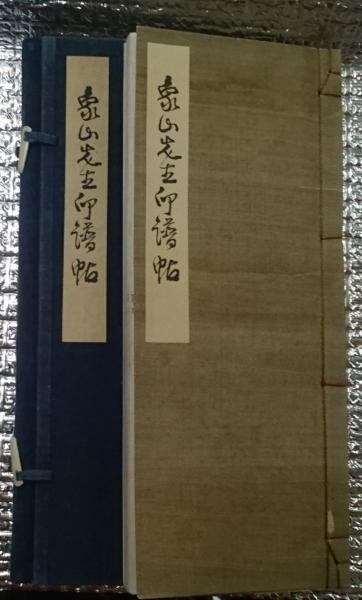 象山先生印譜帖
象山先生印譜帖